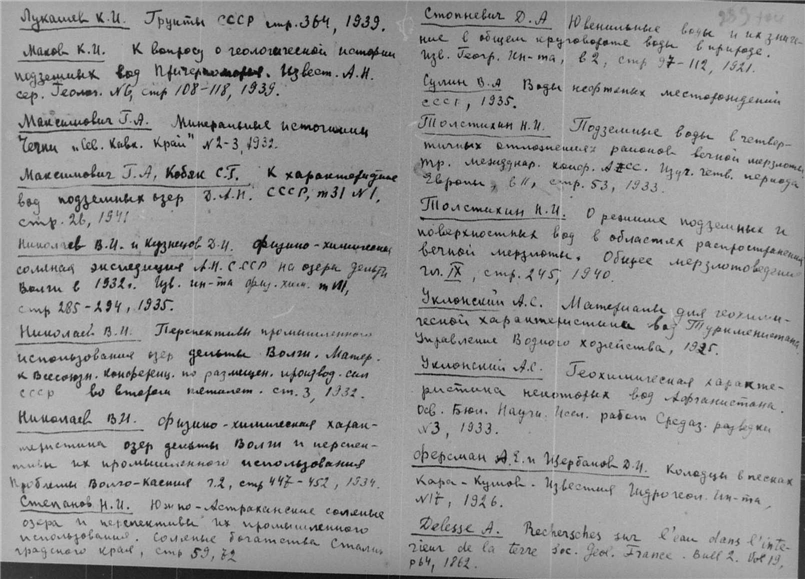 Лукашев К.И. Грунты СССР стр. 364, 1939.
Маков К.И. К вопросу о геологической истории
подземных вод Причерноморья. Извест. А.Н.
сер. Геолог. №6, стр 108-118, 1939.
Максимович Г.А. Минеральные источники
Чечни "Сев. Кавк. Край" №2-3, 1932.
Максимович Г.А, Кобяк С.Г. К характеристике
вод подземных озер Д.А.Н. СССР, т31 №1,
стр. 26, 1941
Николаев В.И. и Кузнецов Д.И. Физико-химическая
соляная экспедиция А.Н. СССР на озера дельты
Волги в 1932г. Изв. ин-та физ. хим. т VII,
стр 285-294, 1935.
Николаев В.И. Перспективы промышленного
использования озер дельты Волги. Матер.
к Всесоюзн. Конференц. по размещен. производ. сил
СССР во втором пятилет. ст. 3, 1932.
Николаев В.И. Физико-химическая харак-
теристика озер дельты Волги и перспек-
тивы их промышленного использования
Проблемы Волго-Каспия т.2, стр 447-452, 1934.
Степанов Н.И. Южно-Астраханские соляные
озера и перспективы их промышленного
использования. Соляные богатства Сталин
градского края, стр 59, 72
Стопневич Д.А Ювенильные воды и их значе-
ние в общем круговороте воды в природе.
Изв. Геогр. Ин-та, в 2, стр 97-112, 1921.
Сулин В.А Воды нефтяных месторождений
СССР, 1935.
Толстихин Н.И. Подземные воды в четвер-
тичных отложениях районов вечной мерзлоты,
тр. междунар. конф. Асс. Изуч. четв. периода
Европы, в II, стр. 53, 1933.
Толстихин Н.И. О режиме подземных и
поверхностных вод в областях распространения
вечной мерзлоты. Общее мерзлотоведение
гл. IX, стр. 245, 1940.
Уклонский А.С. Материалы для геохими-
ческой характеристики вод Туркменистана
Управление Водного хозяйства, 1925.
Уклонский А.С. Геохимическая характе-
ристика некоторых вод Афганистана.
Осв. Бюл. Научн. Иссл. работ Средаз. разведки
№3, 1933.
Ферсман А.Е. и Щербаков Д.И. Колодцы в песках
Кара-Кумов. Известия Гидрогеол. Ин-та,
№17, 1926.
Delesse A. Rechersches sur l'eau dans l'inte-
rieur de la terre Soc. Geol. France. Bull 2. Vol 19,
p 64, 1862.